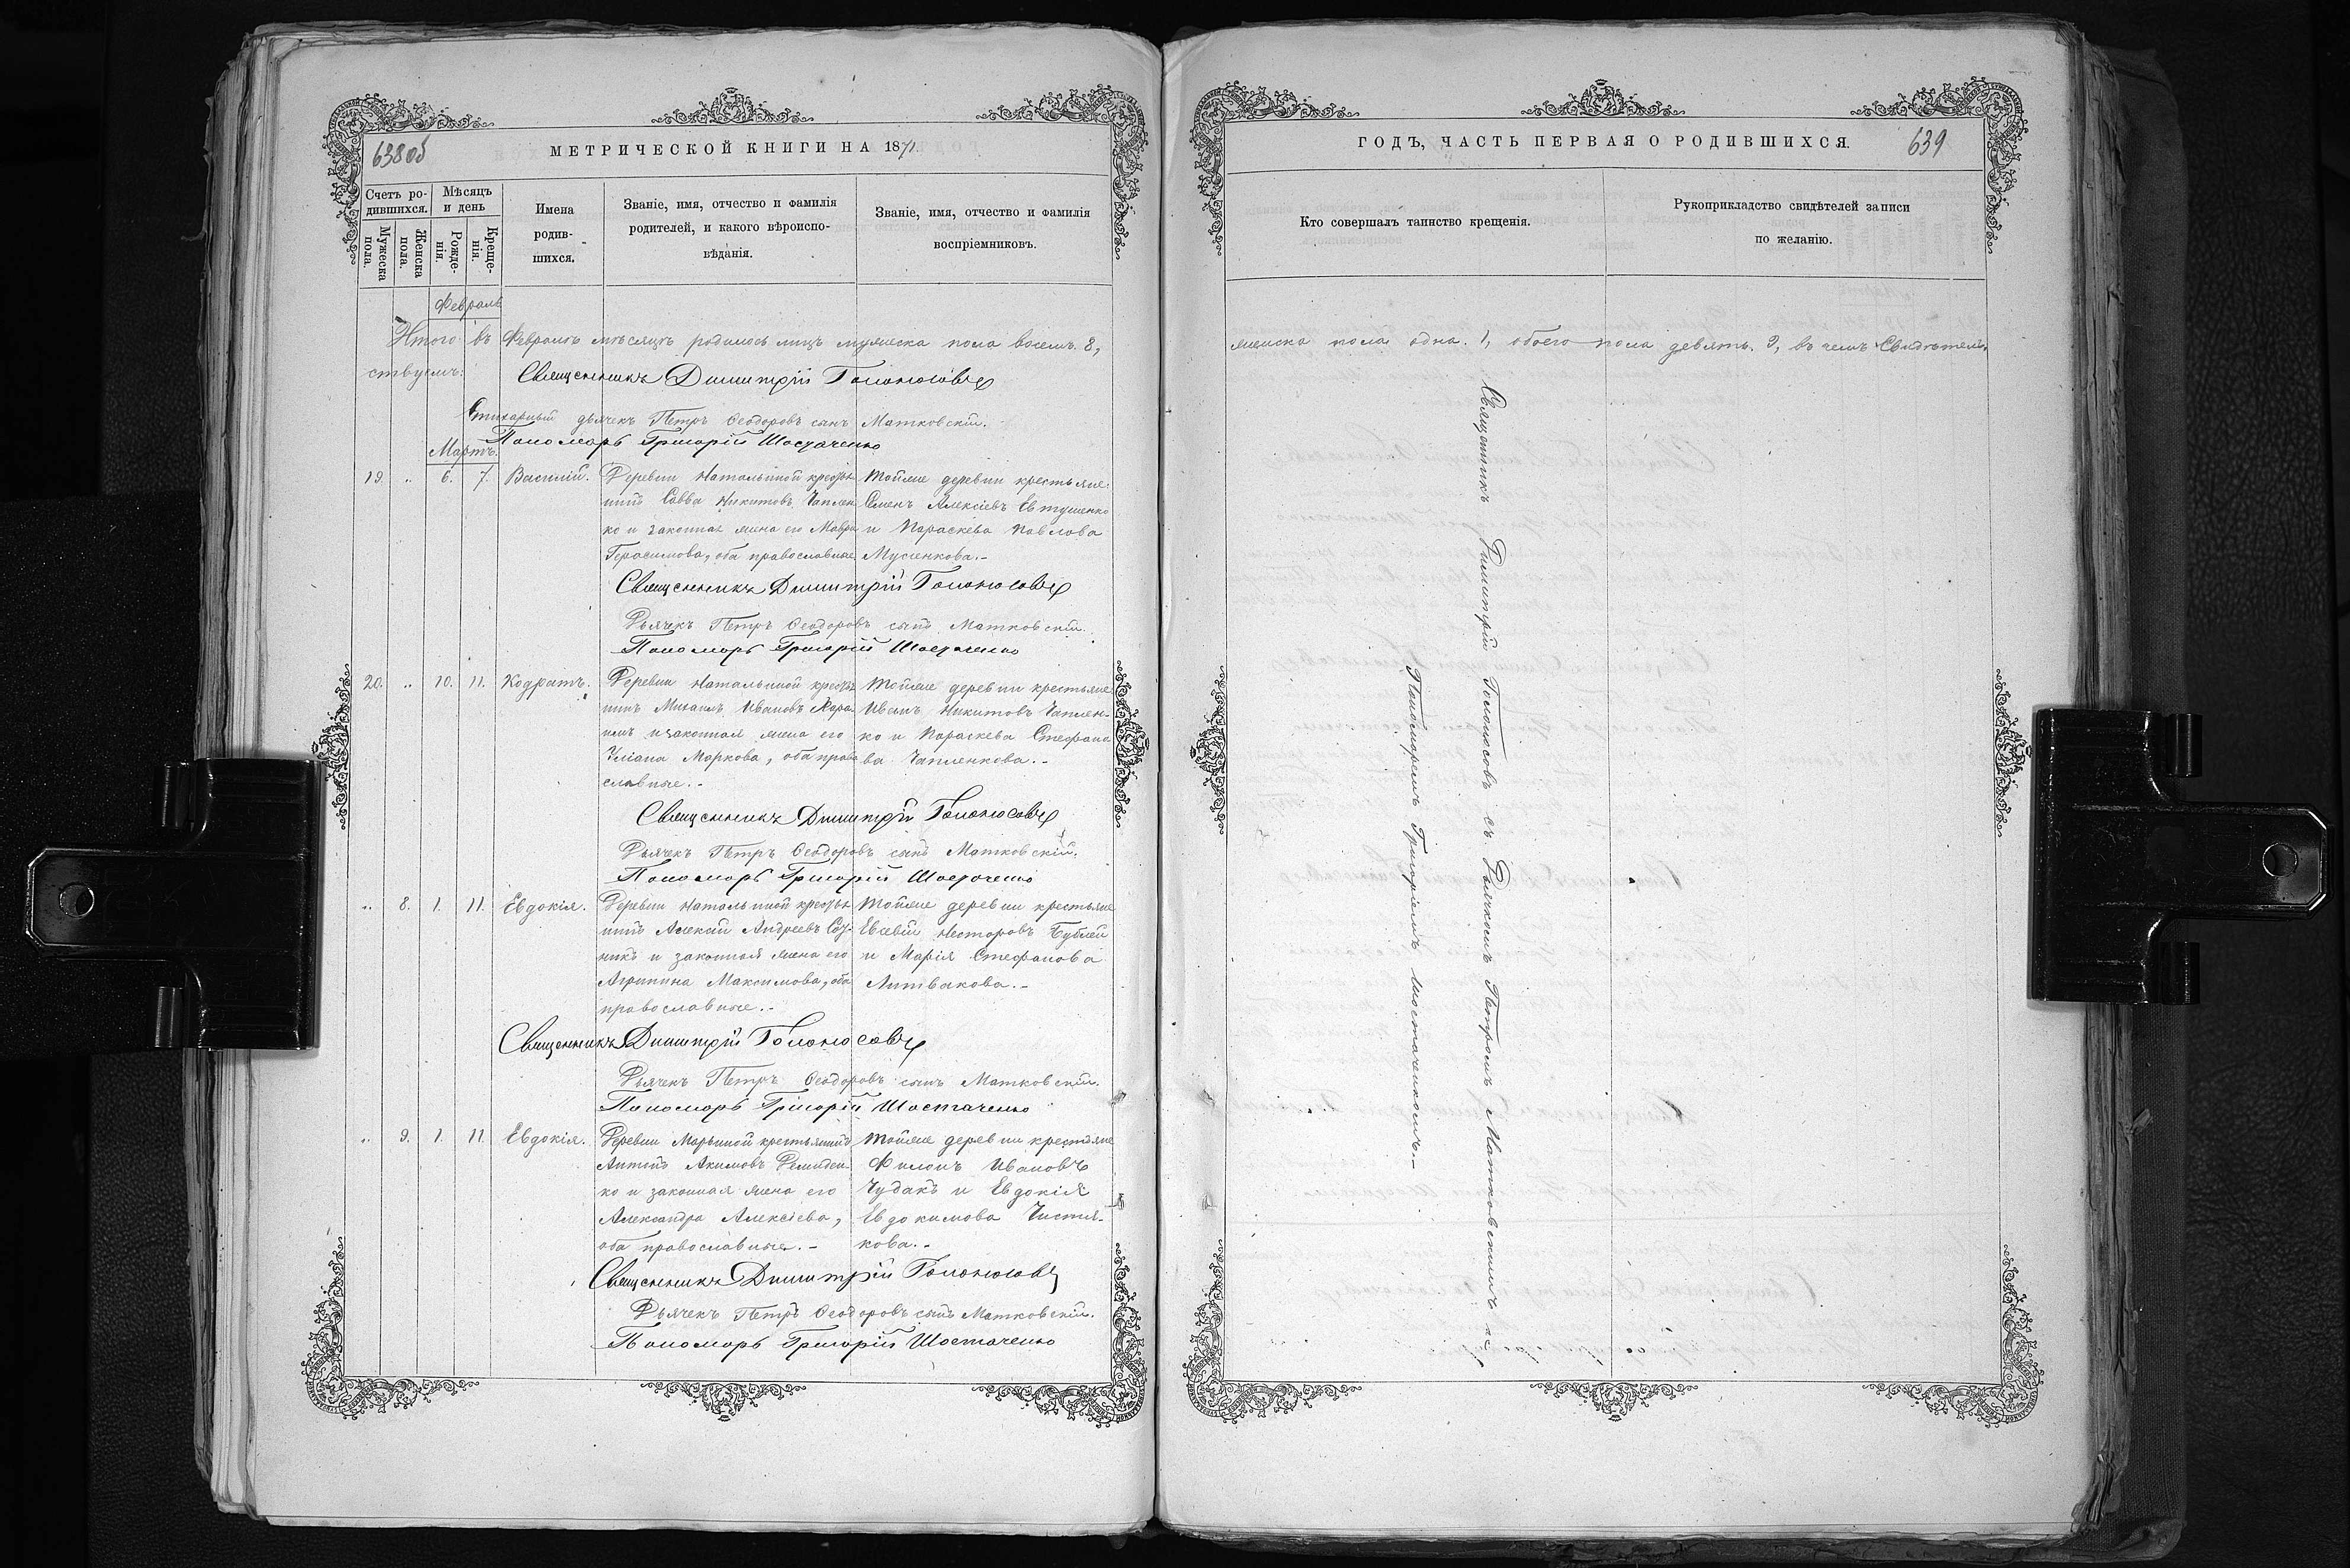 638об
МЕТРИЧЕСКОЙ КНИГИ НА 1871.
Счетъ ро-
дившихся.
Мужеска
пола.
Женска
пола.
Мѣсяцъ
и день
Рожде-
нія.
Креще-
нія.
Имена
родив-
шихся.
Званіе, имя, отчество и фамилія
родителей, и какого вѣроиспо-
вѣданія.
Званіе, имя, отчество и фамилія
воспріемниковъ.
Февраль
Итого въ Февралѣ мѣсяцѣ родилось лицъ мужеска пола восемь. 8,
ствуемъ:
Священникъ Димитрій Голоносовъ
Стихарный дьячекъ Петръ Ѳеодоровъ сынъ Матковскій.
Пономарь Григорій Шостаченко
Мартъ.
19. „ 6. 7. Василій.
Деревни Натальиной крестья-
нинъ Савва Никитовъ Чаплен
ко и законная жена его Мавра
Герасимова, оба православные.
Тойже деревни крестьяне:
Семенъ Алексіевъ Евтушенко
и Параскева Павлова
Мусіенкова.-
Священникъ Димитрій Голоносовъ
Дьячекъ Петръ Ѳеодоровъ сынъ Матковскій.
Пономарь Григорій Шостаченко
20. „ 10. 11. Кодратъ.
Деревни Натальиной крестья
нинъ Михаилъ Ивановъ
и законная жена его
Уліана Маркова, оба право
славные.-
Тойже деревни крестьяне
Иванъ Никитовъ Чаплен-
ко и Параскева Стефано
ва Чапленкова.-
Священникъ Димитрій Голоносовъ
Дьячекъ Петръ Ѳеодоровъ сынъ Матковскій.
Пономарь Григорій Шостаченко
„ 8. 1. 11. Евдокія.
Деревни Натальиной крестья
нинъ Алексій Андреевъ
никъ и законная жена его
Агрипина Максимова, оба
православные.-
Тойже деревни крестьяне
Евсевій Несторовъ Бублей
и Марія Стефанова
Литвакова.-
Священникъ Димитрій Голоносовъ
Дьячекъ Петръ Ѳеодоровъ сынъ Матковскій.
Пономарь Григорій Шостаченко
„ 9. 1. 11. Евдокія.
Деревни Марьиной крестьянинъ
Антонъ Акимовъ Демиден-
ко и законная жена его
Александра Алексіева,
оба православные.-
Тойже деревни крестьяне
Филонъ Ивановъ
Чудакъ и Евдокія
Евдокимова Чистя-
кова.-
Священникъ Димитрій Голоносовъ
Дьячекъ Петръ Ѳеодоровъ сынъ Матковскій.
Пономарь Григорій Шостаченко
ГОДЪ, ЧАСТЬ ПЕРВАЯ О РОДИВШИХСЯ.
639
Кто совершалъ таинство крещенія.
Рукоприкладство свидѣтелей записи
по желанію.
женска пола одна. 1, обоего пола девять. 9, въ чемъ свидѣтель-
Священникъ Димитрій Голоносовъ съ Дьячкомъ Петромъ Матковскимъ и
Пономаремъ Григоріемъ Шостаченкомъ.-